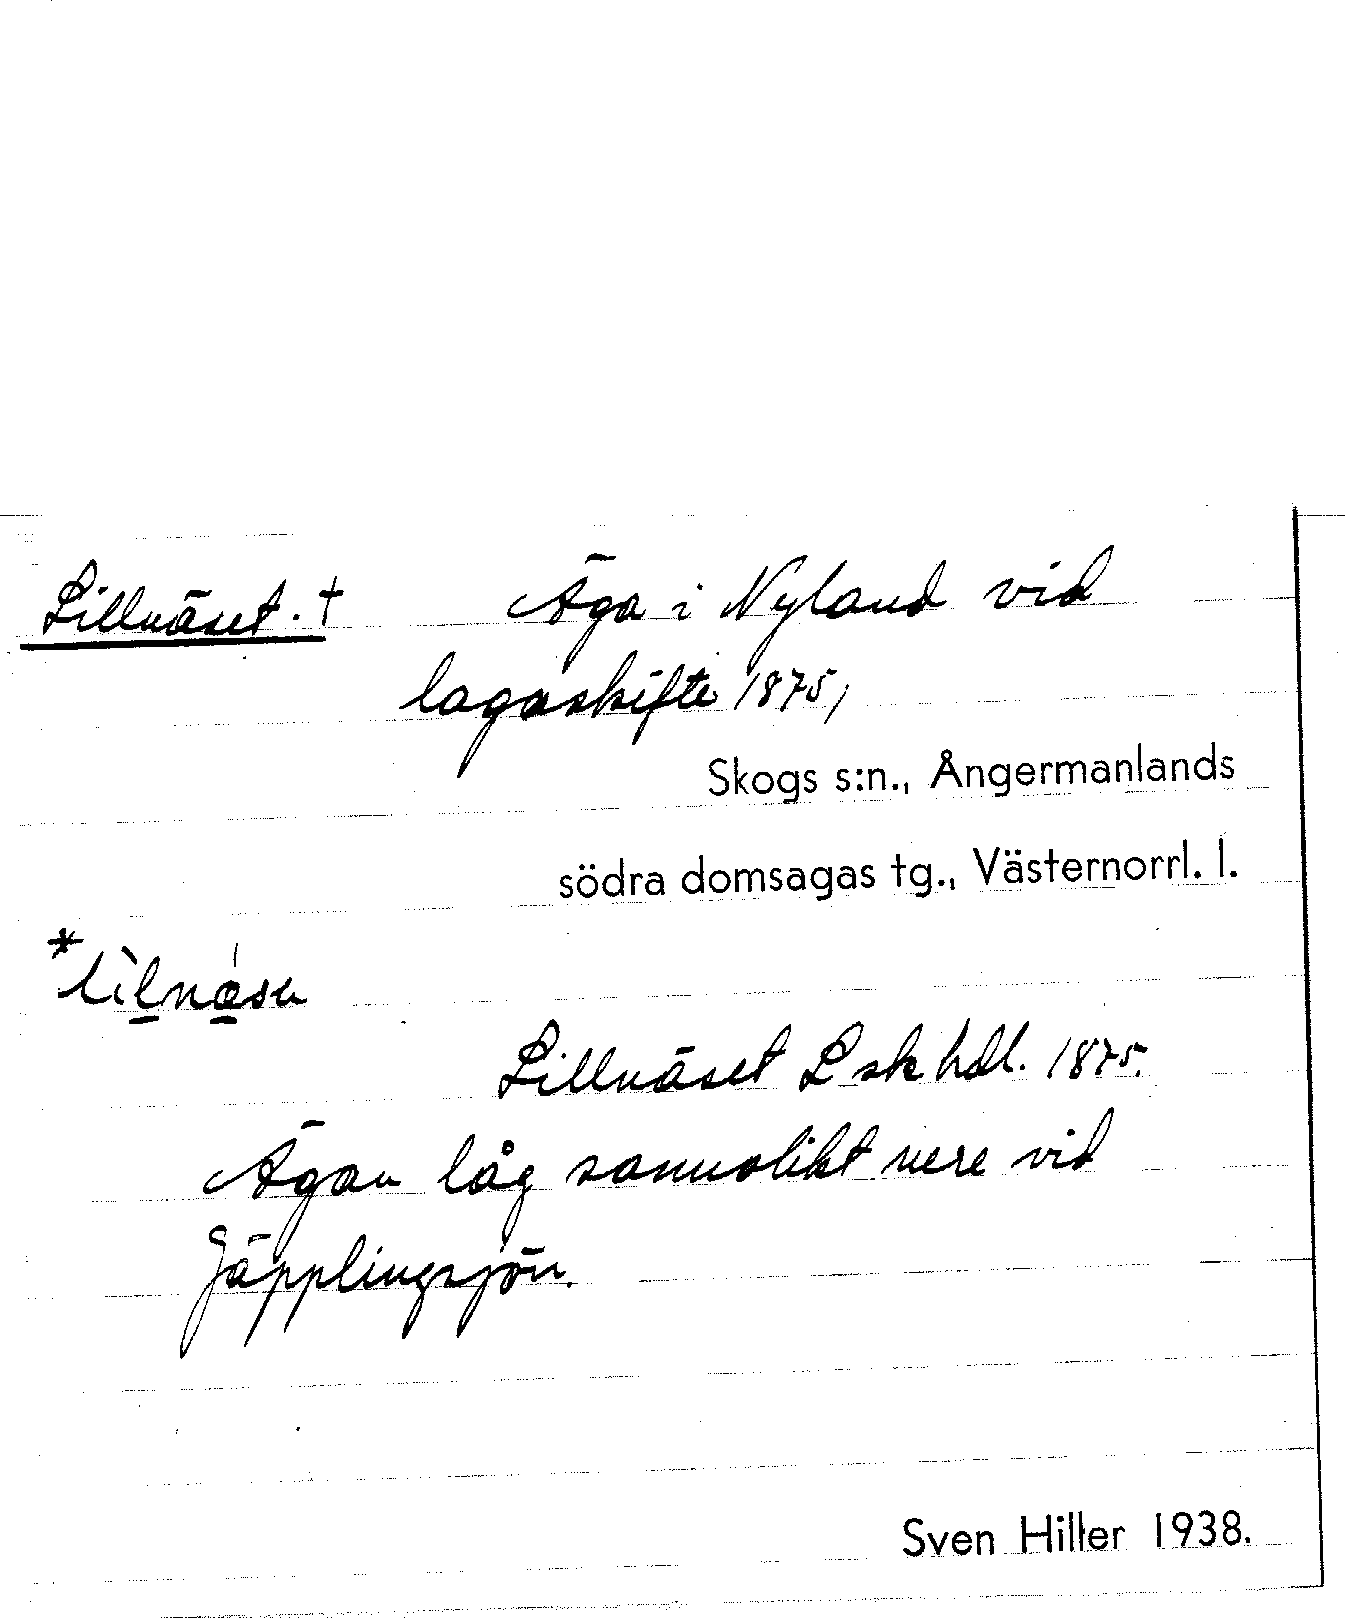 Lillnäset. † Äga i Nyland vid
lagaskifte 1875,
Skogs s:n., Ångermanlands
södra domsagas tg., Västernorrl. l.
Lillnäset L sk hdl. 1875.
Ägan låg sannolikt nere vid
Jäpplingsjön.
Sven Hiller 1938.